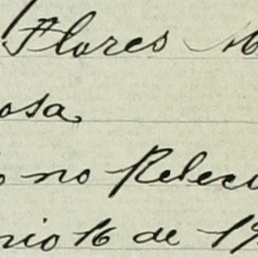 Flores M
osa
o no Relec
nio 16 de 19